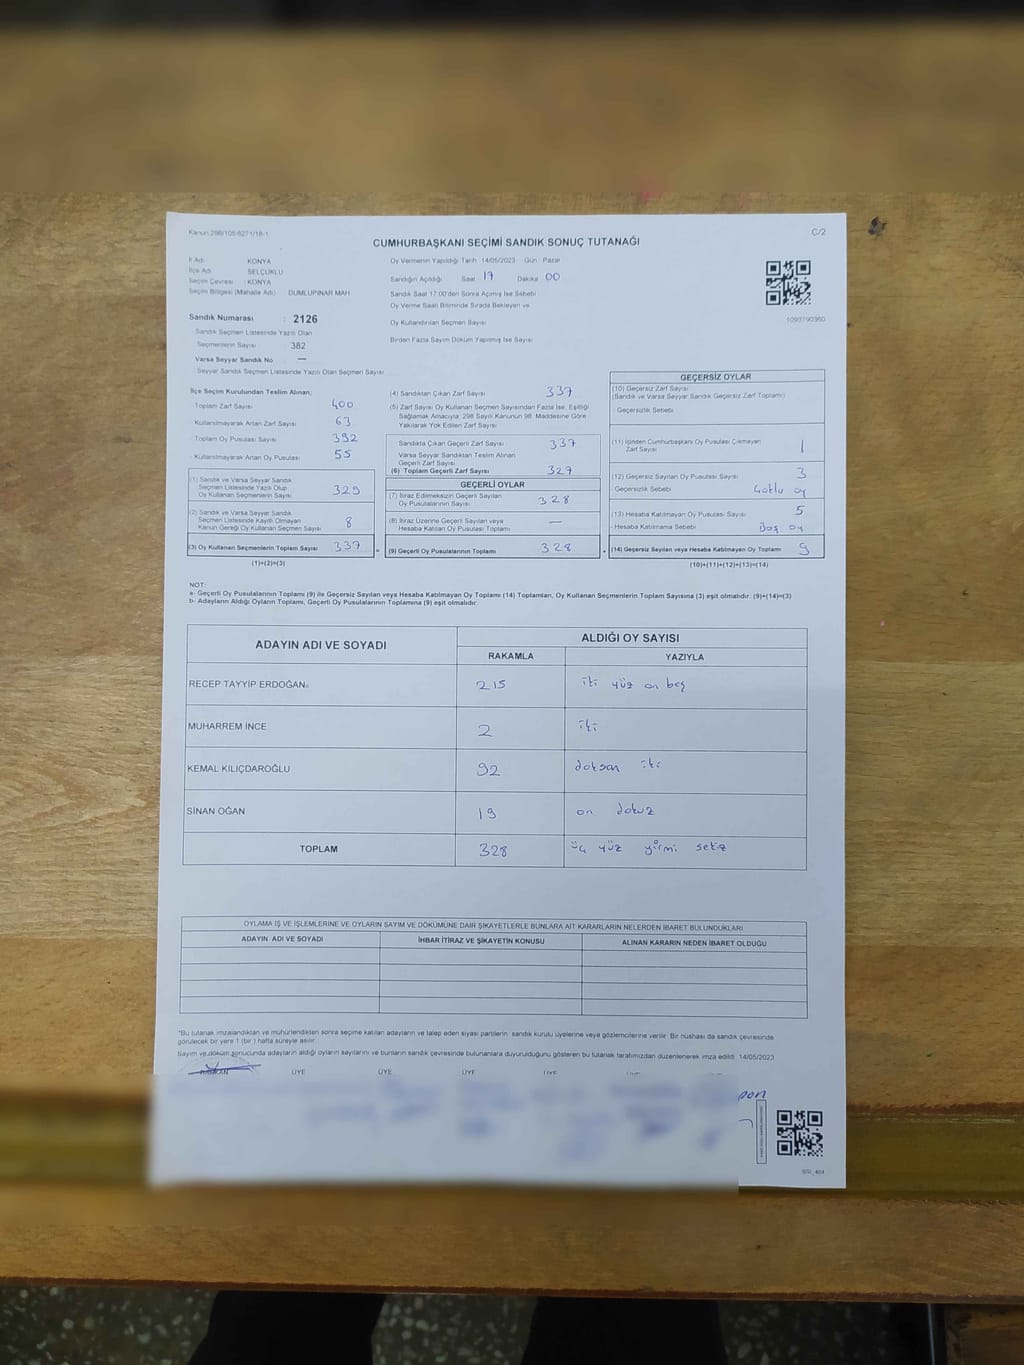 Kanun 298/105 6271/18-1
C/2
CUMHURBAŞKANI SEÇİMİ SANDIK SONUÇ TUTANAĞI
İl Adı KONYA
İlçe Adı SELÇUKLU
Seçim Çevresi KONYA
Seçim Bölgesi (Mahalle Adı) DUMLUPINAR MAH
Sandık Numarası : 2126
Sandık Seçmen Listesinde Yazılı Olan
Seçmenlerin Sayısı 382
Varsa Seyyar Sandık No —
Seyyar Sandık Seçmen Listesinde Yazılı Olan Seçmen Sayısı
Oy Vermenin Yapıldığı Tarih 14/05/2023 Gün Pazar
Sandığın Açıldığı Saat 17 Dakika 00
Sandık Saat 17:00'den Sonra Açılmış İse Sebebi
Oy Verme Saati Bitiminde Sırada Bekleyen ve
Oy Kullandırılan Seçmen Sayısı
Birden Fazla Sayım Döküm Yapılmış İse Sayısı
1093790360
İlçe Seçim Kurulundan Teslim Alınan;
Toplam Zarf Sayısı 400
Kullanılmayarak Artan Zarf Sayısı 63
Toplam Oy Pusulası Sayısı 392
Kullanılmayarak Artan Oy Pusulası 55
(1) Sandık ve Varsa Seyyar Sandık
Seçmen Listesinde Yazılı Olup
Oy Kullanan Seçmenlerin Sayısı 329
(2) Sandık ve Varsa Seyyar Sandık
Seçmen Listesinde Kayıtlı Olmayan
Kanun Gereği Oy Kullanan Seçmen Sayısı 8
(3) Oy Kullanan Seçmenlerin Toplam Sayısı 337
(1)+(2)=(3)
(4) Sandıktan Çıkan Zarf Sayısı 337
(5) Zarf Sayısı Oy Kullanan Seçmen Sayısından Fazla İse, Eşitliği
Sağlamak Amacıyla; 298 Sayılı Kanunun 98. Maddesine Göre
Yakılarak Yok Edilen Zarf Sayısı
Sandıkta Çıkan Geçerli Zarf Sayısı 337
Varsa Seyyar Sandıktan Teslim Alınan
Geçerli Zarf Sayısı
(6) Toplam Geçerli Zarf Sayısı 327
GEÇERLİ OYLAR
(7) İtiraz Edilmeksizin Geçerli Sayılan
Oy Pusulalarının Sayısı 328
(8) İtiraz Üzerine Geçerli Sayılan veya
Hesaba Katılan Oy Pusulası Toplamı —
= (9) Geçerli Oy Pusulalarının Toplamı 328
GEÇERSİZ OYLAR
(10) Geçersiz Zarf Sayısı
(Sandık ve Varsa Seyyar Sandık Geçersiz Zarf Toplamı)
Geçersizlik Sebebi
(11) İçinden Cumhurbaşkanı Oy Pusulası Çıkmayan
Zarf Sayısı 1
(12) Geçersiz Sayılan Oy Pusulası Sayısı 3
Geçersizlik Sebebi Çoklu oy
(13) Hesaba Katılmayan Oy Pusulası Sayısı 5
Hesaba Katılmama Sebebi Boş oy
+ (14) Geçersiz Sayılan veya Hesaba Katılmayan Oy Toplamı 9
(10)+(11)+(12)+(13)=(14)
NOT:
a- Geçerli Oy Pusulaları Toplamı (9) ile Geçersiz Sayılan veya Hesaba Katılmayan Oy Toplamı (14) Toplamları, Oy Kullanan Seçmenlerin Toplam Sayısına (3) eşit olmalıdır. (9)+(14)=(3)
b- Adayların Aldığı Oyların Toplamı, Geçerli Oy Pusulalarının Toplamına (9) eşit olmalıdır.
ADAYIN ADI VE SOYADI
ALDIĞI OY SAYISI
RAKAMLA YAZIYLA
RECEP TAYYİP ERDOĞAN 215 iki yüz on beş
MUHARREM İNCE 2 iki
KEMAL KILIÇDAROĞLU 92 doksan iki
SİNAN OĞAN 19 on dokuz
TOPLAM 328 üç yüz yirmi sekiz
OYLAMA İŞ VE İŞLEMLERİNE VE OYLARIN SAYIM VE DÖKÜMÜNE DAİR ŞİKAYETLERLE BUNLARA AİT KARARLARIN NELERDEN İBARET BULUNDUKLARI
ADAYIN ADI VE SOYADI İHBAR İTİRAZ VE ŞİKAYETİN KONUSU ALINAN KARARIN NEDEN İBARET OLDUĞU
*Bu tutanak imzalandıktan ve mühürlendikten sonra seçime katılan adayların ve talep eden siyasi partilerin sandık kurulu üyelerine veya gözlemcilerine verilir. Bir nüshası da sandık çevresinde
görülecek bir yere 1 (bir) hafta süreyle asılır.
Sayım ve döküm sonucunda adayların aldığı oyların sayılarını ve bunların sandık çevresinde bulunanlara duyurulduğunu gösteren bu tutanak tarafımızdan düzenlenerek imza edildi. 14/05/2023
BAŞKAN ÜYE ÜYE ÜYE ÜYE